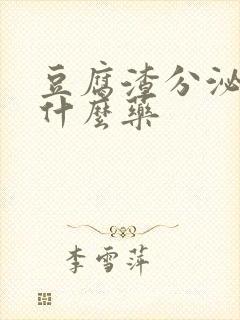 豆腐渣分泌
什麼藥
李雪萍